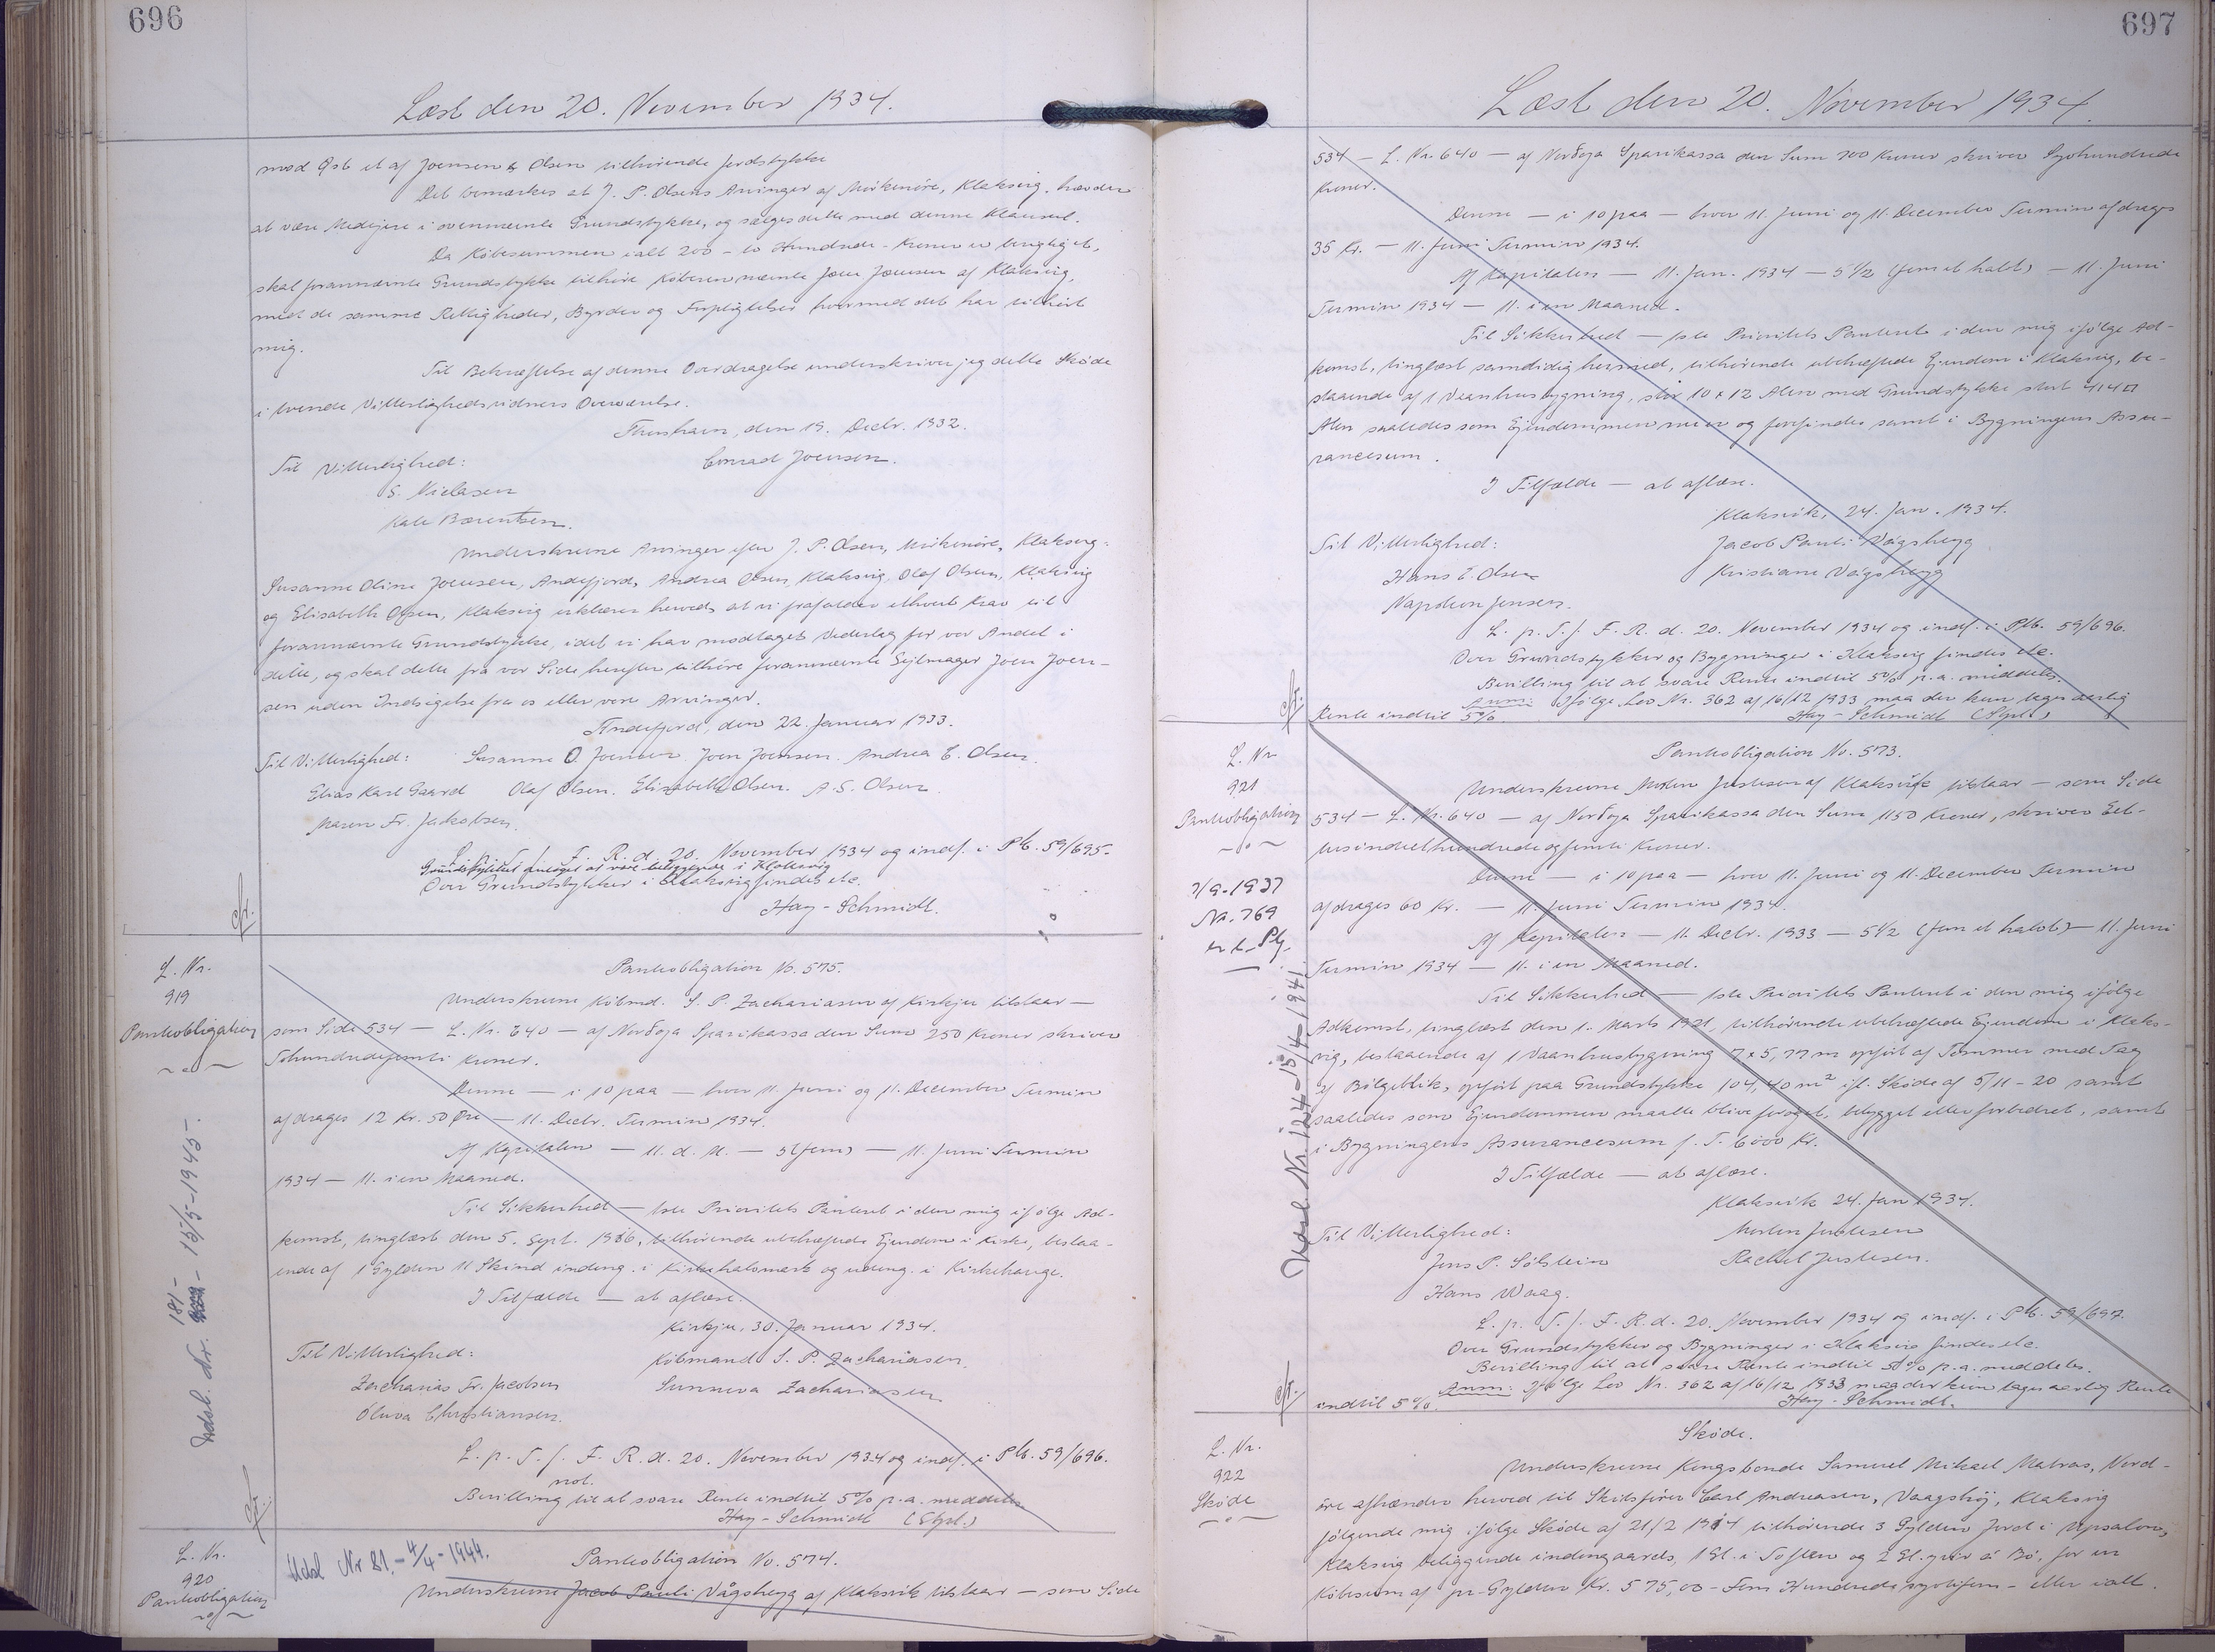 696
Læst den 20. November 1934.
mod Øst et af Joensen & Olsen tilhørende Jordstykke
Det bemærkes at J. P. Olsens Arvinger af Mirkinöre, Klaksvig, hævder
at være Medejere i ovennævnte Grundstykke, og sælges dette med denne Klausul.
Da Købesummen ialt 200 - to Hundrede - Kroner er berigtiget,
skal forannævnte Grundstykke tilhøre Køberen nævnte Joen Joensen af Klaksvig,
med de samme Rettigheder, Byrder og Forpligtelser hvormed det har tilhørt
mig.
Til Bekræftelse af denne Overdragelse underskriver jeg dette Skøde
i tvende Vitterlighedsvidners Overværelse.
Thorshavn, den 19. Decbr. 1932.
Til Vitterlighed:
Conrad Joensen.
S. Nielasen
Kate Bærentsen.
Underskrevne Arvinger efter J. P. Olsen, Mirkinöre, Klaksvig:
Susanne Oline Joensen, Andefjord, Andrea Olsen, Klaksvig, Olaf Olsen, Klaksvig
og Elisabeth Olsen, Klaksvig erklærer herved, at vi frafalder ethvert Krav til
forannævnte Grundstykke, idet vi har modtaget Vederlag for vor Andel i
dette, og skal dette fra vor Side herefter tilhøre forannævnte Sejlmager Joen Joen-
sen uden Indsigelse fra os eller vore Arvinger.
Andefjord, den 22. Januar 1933.
Til Vitterlighed: Susanne O. Joensen. Joen Joensen. Andrea E. Olsen.
Elias Karl Gaard Olaf Olsen. Elisabeth Olsen. A. S. Olsen.
Maren Fr. Jakobsen.
L. p. T. f. F. R. d. 20. November 1934 og indf. i Ptb. 59/695.
Grundstykket antaget at være beliggende i Klaksvig
Over Grundstykker i Klaksvig findes etc.
Hay-Schmidt.
L. Nr.
919
Pantobligation
Udsl. Nr. 181 - 15/5-1945-.
Pantobligation No. 575.
Underskrevne Købmd. S. P. Zachariasen af Kirkju tilstaar —
som Side 534 — L. Nr. 640 — af Norðoya Sparikassa den Sum 250 Kroner skriver
Tohundredefemti Kroner.
Denne — i 10 paa — hver 11. Juni og 11. December Termin
afdrages 12 Kr. 50 Øre — 11. Decbr. Termin 1934.
Af Kapitalen — 11. d. M. — 5 (fem) — 11. Juni Termin
1934 — 11. i en Maaned.
Til Sikkerhed — 1ste Prioritets Panteret i den mig ifølge Ad-
komst, tinglæst den 5. Sept. 1916, tilhørende ubehæftede Ejendom i Kirke, bestaa-
ende af 1 Gylden 11 Skind indeng. i Kirkehalvmark og udeng. i Kirkehauge.
I Tilfælde — at aflæse.
Kirkju, 30. Januar 1934.
Til Vitterlighed:
Købmand S. P. Zachariasen.
Zacharias Fr. Jacobsen
Sunneva Zachariasen
Oluva Christiansen.
L. p. T. f. F. R. d. 20. November 1934 og indf. i Ptb. 59/696.
not.
Bevilling til at svare Rente indtil 5% p.a. meddeles
Hay-Schmidt (Stpl.)
L. Nr.
920
Pantobligation
Udsl Nr 81. - 4/4-1944.
Pantobligation No. 574.
Underskrevne Jacob Pauli Vågsheyg af Klaksvik tilstaar — som Side
697
Læst den 20. November 1934.
534 — L. Nr. 640 — af Norðoya Sparikassa den Sum 700 Kroner skriver Syvhundrede
Kroner.
Denne — i 10 paa — hver 11. Juni og 11. December Termin afdrages
35 Kr. — 11. Juni Termin 1934.
Af Kapitalen — 11. Jan. 1934 — 5 1/2 (fem et halv) — 11. Juni
Termin 1934 — 11. i en Maaned.
Til Sikkerhed — 1ste Prioritets Panteret i den mig ifølge Ad-
komst, tinglæst samdidig hermed, tilhørende ubehæftede Ejendom i Klaksvig, be-
staaende af 1 Vaanhusbygning, stor 10 x 12 Alen med Grundstykke stort 414 □
Alen saaledes som Ejendommen nu er og forefindes samt i Bygningens Assu-
rancesum.
I Tilfælde — at aflæse.
Klaksvik, 24. Jan. 1934.
Til Vitterlighed:
Jacob Pauli Vágsheyg
Hans E. Olsen
Kristiane Vágsheyg
Napoleon Jensen.
L. p. T. f. F. R. d. 20. November 1934 og indf. i Ptb. 59/696.
Over Grundstykker og Bygninger i Klaksvig findes etc.
Bevilling til at svare Rente indtil 5% p.a. meddeles.
Anm: Ifølge Lov Nr. 362 af 16/12 1933 maa der kun tages aarlig
Rente indtil 5%.
Hay-Schmidt (Stpl.)
L. Nr
921
Pantobligation
7/9-1937
Nr. 769
Udsl. Nr. 124-15/4-1941
Pantobligation No. 573.
Underskrevne Morten Justesen af Klaksvik tilstaar — som Side
534 — L. Nr. 640 — af Norðoya Sparikassa den Sum 1150 Kroner, skriver Eet-
tusindethundredeogfemti Kroner.
Denne — i 10 paa — hver 11. Juni og 11. December Termin
afdrages 60 Kr. — 11. Juni Termin 1934.
Af Kapitalen — 11. Decbr. 1933 — 5 1/2 (fem et halvt) — 11. Juni
Termin 1934 — 11. i en Maaned.
Til Sikkerhed — 1ste Prioritets Panteret i den mig ifølge
Adkomst, tinglæst den 1. Marts 1921, tilhørende ubehæftede Ejendom i Klaks-
vig, bestaaende af 1 Vaanhusbygning 7 x 5,77 m opført af Tømmer med Tag
af Bølgeblik, opført paa Grundstykke 104,40 m² ifl. Skøde af 5/11-20 samt
saaledes som Ejendommen maatte blive forøget, bebygget eller forbedret, samt
i Bygningens Assurancesum f. T. 6000 Kr.
I Tilfælde — at aflæse.
Klaksvik 24. Jan 1934.
Til Vitterlighed:
Morten Justesen
Jens P. Sólstein
Rachel Justesen.
Hans Waag.
L. p. T. f. F. R. d. 20. November 1934 og indf. i Ptb. 59/697.
Over Grundstykker og Bygninger i Klaksvig findes etc.
Bevilling til at svare Rente indtil 5% p.a. meddeles.
Anm: Ifølge Lov Nr. 362 af 16/12 1933 maa der kun tages aarlig Rente
indtil 5%.
Hay-Schmidt.
L. Nr.
922
Skøde
Skøde.
Underskrevne Kongsbonde Samuel Mikael Matras, Nord-
øre afhænder herved til Skibsfører Carl Andreasen, Vaagshøj, Klaksvig
følgende mig ifølge Skøde af 21/2 1914 tilhørende 3 Gylden Jord i Upsalom,
Klaksvig beliggende indengaards, 1 Gl. i Toften og 2 Gl. yvir á Bø, for en
Købesum af pr. Gylden Kr. 575,00 - Fem Hundrede syvtifem - eller ialt